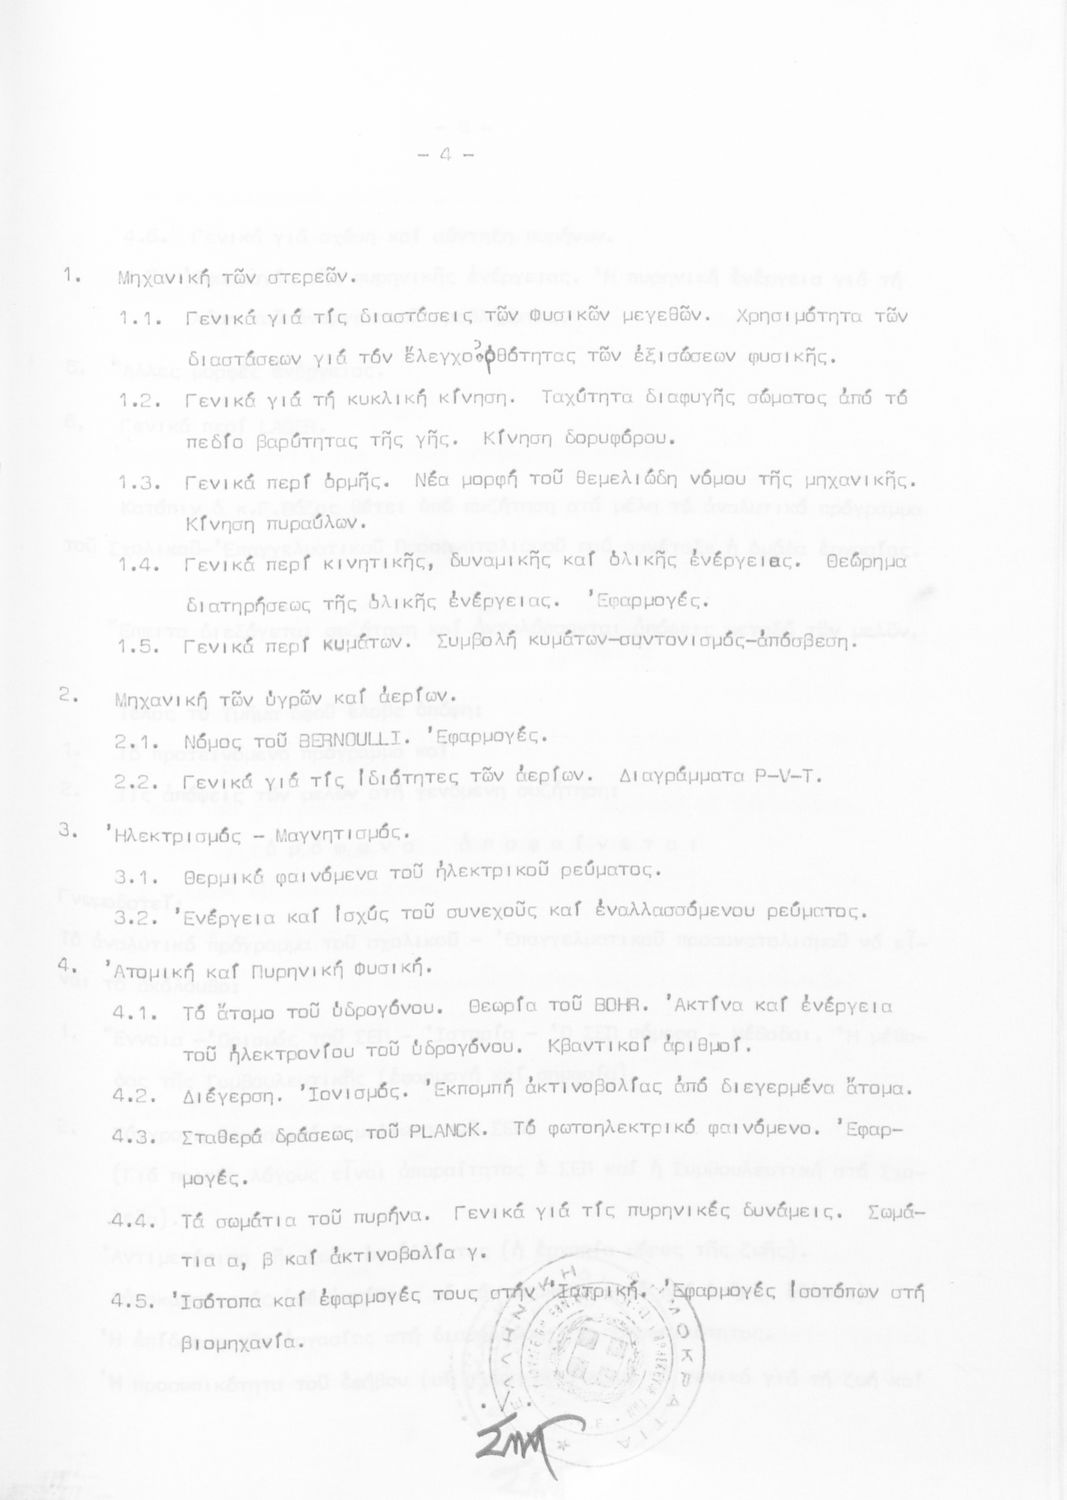 - 4 -
1. Μηχανική τῶν στερεῶν.
1.1. Γενικά γιά τίς διαστάσεις τῶν Φυσικῶν μεγεθῶν. Χρησιμότητα τῶν
διαστάσεων γιά τόν ἔλεγχο ὀρθότητας τῶν ἐξισώσεων φυσικῆς.
1.2. Γενικά γιά τή κυκλική κίνηση. Ταχύτητα διαφυγῆς σώματος ἀπό τό
πεδίο βαρύτητας τῆς γῆς. Κίνηση δορυφόρου.
1.3. Γενικά περί ὁρμῆς. Νέα μορφή τοῦ θεμελιώδη νόμου τῆς μηχανικῆς.
Κίνηση πυραύλων.
1.4. Γενικά περί κινητικῆς, δυναμικῆς καί ὁλικῆς ἐνέργειας. Θεώρημα
διατηρήσεως τῆς ὁλικῆς ἐνέργειας. Ἐφαρμογές.
1.5. Γενικά περί κυμάτων. Συμβολή κυμάτων-συντονισμός-ἀπόσβεση.
2. Μηχανική τῶν ὑγρῶν καί ἀερίων.
2.1. Νόμος τοῦ BERNOULLI. Ἐφαρμογές.
2.2. Γενικά γιά τίς ἰδιότητες τῶν ἀερίων. Διαγράμματα P-V-T.
3. Ἠλεκτρισμός - Μαγνητισμός.
3.1. Θερμικά φαινόμενα τοῦ ἠλεκτρικοῦ ρεύματος.
3.2. Ἐνέργεια καί ἰσχύς τοῦ συνεχοῦς καί ἐναλλασσόμενου ρεύματος.
4. Ἀτομική καί Πυρηνική Φυσική.
4.1. Τό ἄτομο τοῦ ὑδρογόνου. Θεωρία τοῦ BOHR. Ἀκτίνα καί ἐνέργεια
τοῦ ἠλεκτρονίου τοῦ ὑδρογόνου. Κβαντικοί ἀριθμοί.
4.2. Διέγερση. Ἰονισμός. Ἐκπομπή ἀκτινοβολίας ἀπό διεγερμένα ἄτομα.
4.3. Σταθερά δράσεως τοῦ PLANCK. Τό φωτοηλεκτρικό φαινόμενο. Ἐφαρ-
μογές.
4.4. Τά σωμάτια τοῦ πυρήνα. Γενικά γιά τίς πυρηνικές δυνάμεις. Σωμά-
τια α, β καί ἀκτινοβολία γ.
4.5. Ἰσότοπα καί ἐφαρμογές τους στήν Ἰατρική. Ἐφαρμογές ἰσοτόπων στή
βιομηχανία.
ΕΛΛΗΝΙΚΗ ΔΗΜΟΚΡΑΤΙΑ